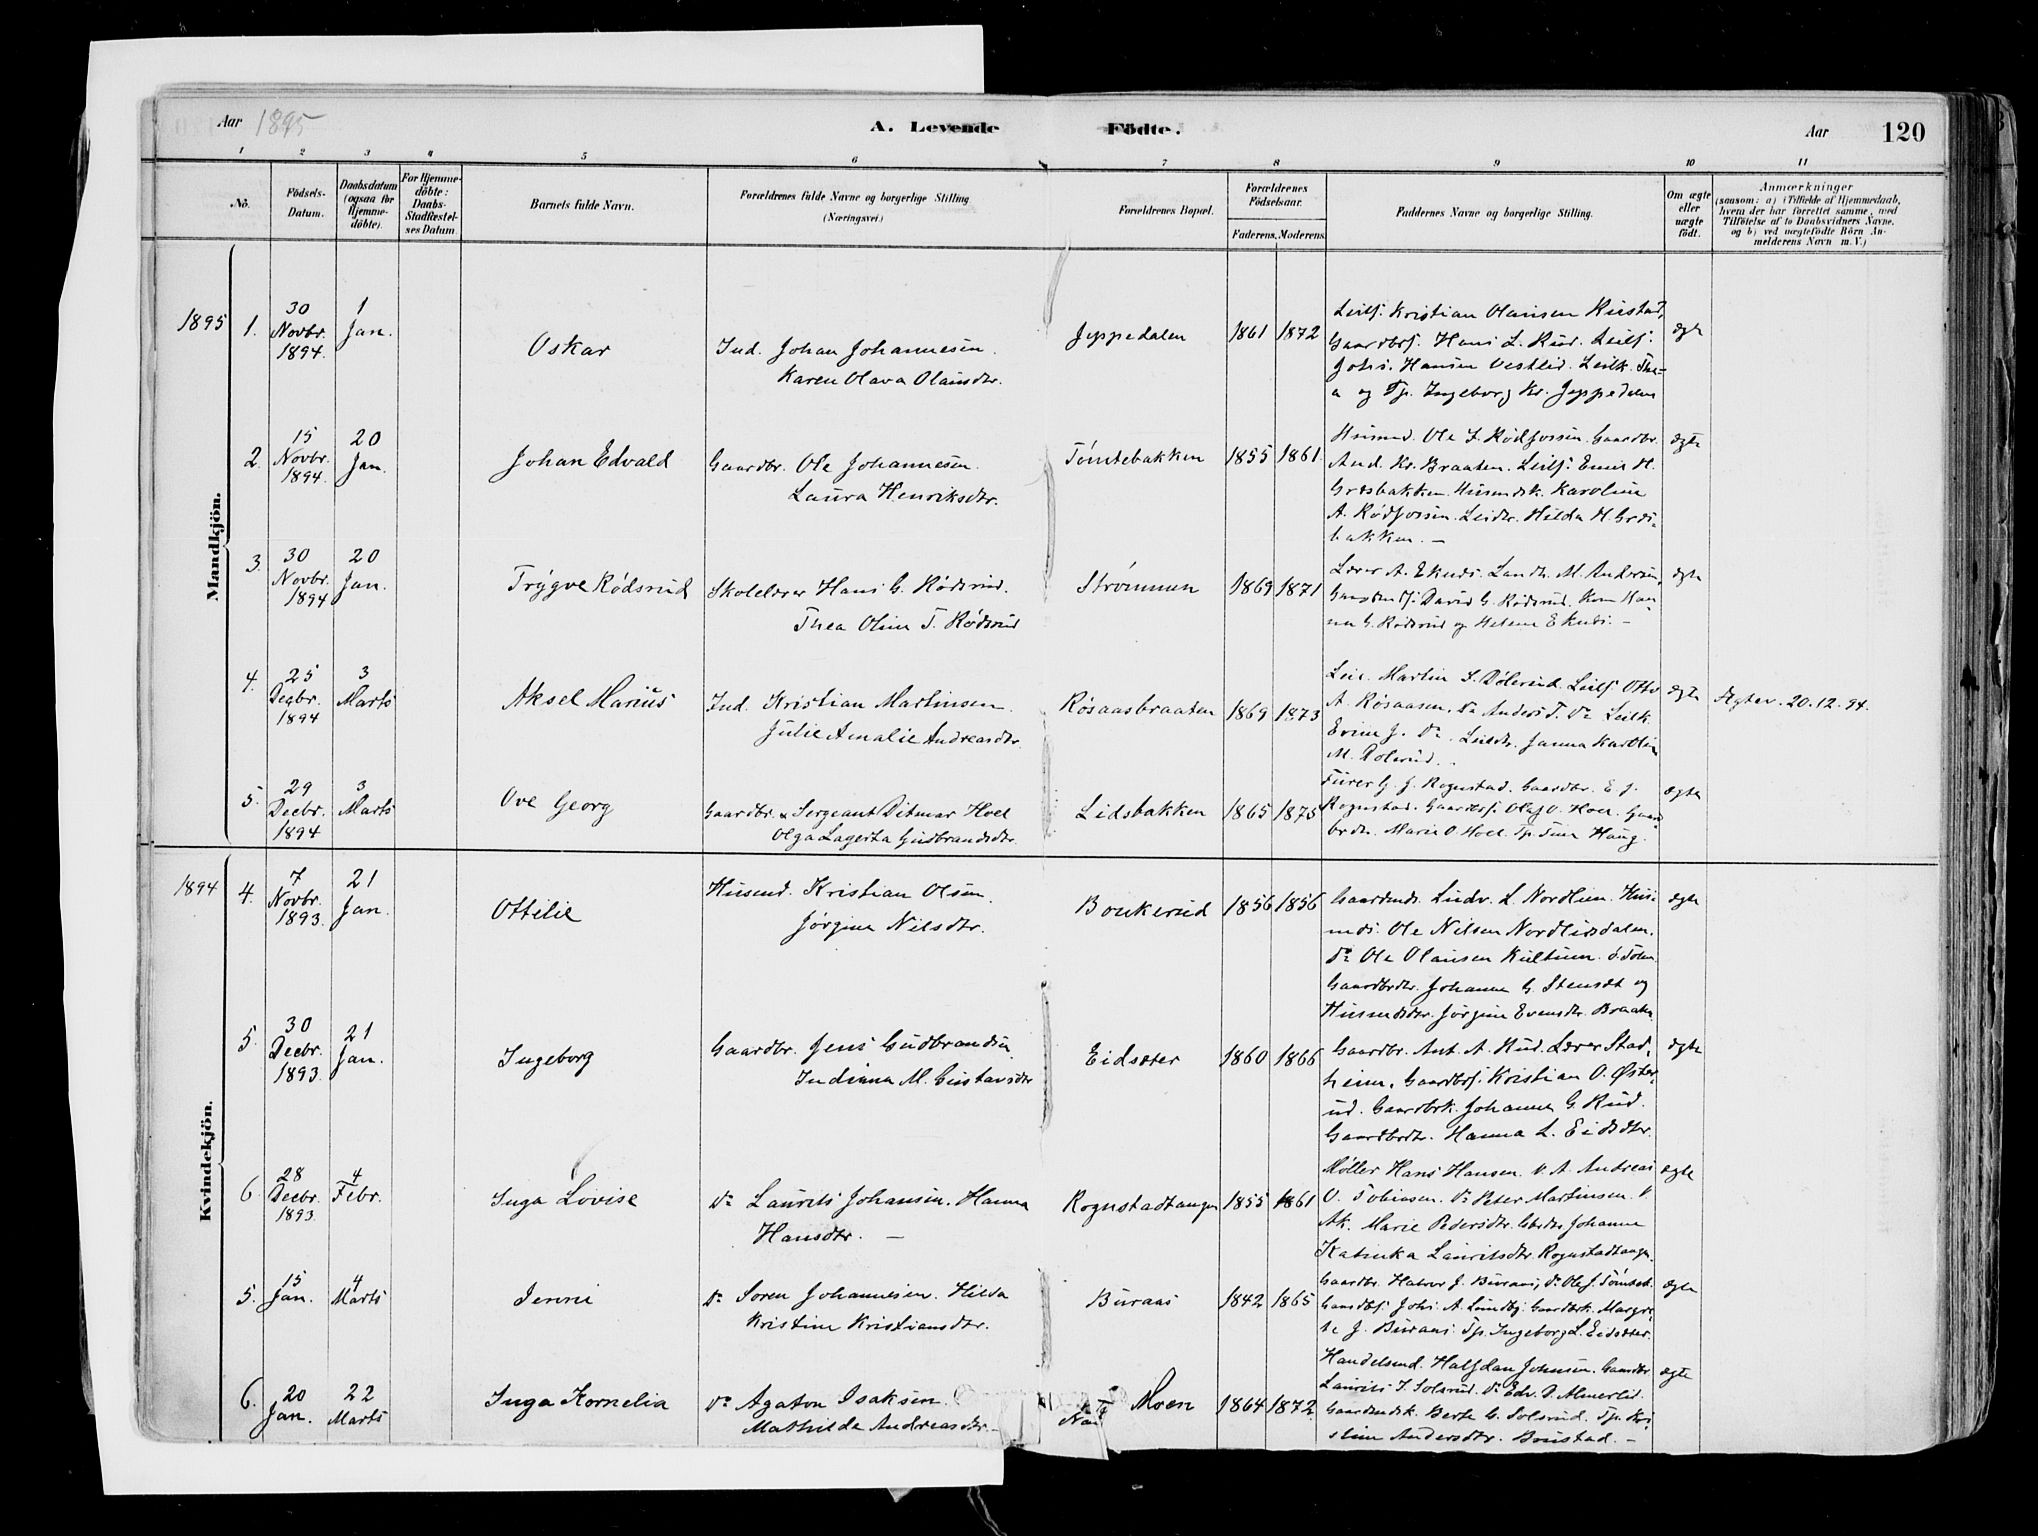 Aar 1895
A. Levende Födte.
Aar 120
1 2 3 4 5 6 7 8 9 10 11
No.
Födsels-Datum.
Daabsdatum (ogsaa for Hjemme-döbte).
For Hjemme-döbte: Daabs-Stadfæstel-ses Datum.
Barnets fulde Navn.
Forældrenes fulde Navne og borgerlige Stilling (Næringsvei.)
Forældrenes Bopæl.
Forældrenes Födselsaar.
Faderens. Moderens.
Faddernes Navne og borgerlige Stilling.
Om ægte eller uægte födt.
Anmærkninger
(saasom: a) i Tilfælde af Hjemmedaab, hvem der har forrettet samme, med Tilföielse af to Daabsvidners Navne, og b) ved uægtefödte Börn An-melderens Navn m. V.)
Mandkjön.
1895 1. 30 Novbr. 1894. 1 Jan. Oskar
Ind. Johan Johannesen.
Karen Olava Olausdtr.
Jeppedalen 1861 1872
Leilf. Kristian Olausen Rustad,
Gaardbrf. Hans L. Rud. Leilf.
Johs. Hansen Vestlid. Leilk. The-
a og Tp. Ingeborg Kr. Jeppedalen
ægte
2. 15 Novbr. 1894. 20 Jan. Johan Edvald
Gaardbr. Ole Johannesen.
Laura Henriksdtr.
Tømtebakken 1855 1861.
Husmd. Ole J. Rødfossen. Gaardbr.
And. Kr. Braaten. Leilf. Emil H.
Græsbakken. Husmdsk. Karoline
A. Rødfossen. Leidtr. Hilda H. Græs-
bakken. —
ægte
3. 30 Novbr. 1894 20 Jan. Trygve Rødsrud
Skolelærer Hans G. Rødsrud.
Thea Oline T. Rødsrud
Strømmen 1869 1871
Lærer A. Eknes. Landh. M. Andersen,
David G. Rødsrud. Han-
na G. Rødsrud og Helene Eknes. —
ægte
4. 25 Decbr. 1894 3 Marts Aksel Marius
Ind. Kristian Martinsen.
Julie Amalie Andreasdtr.
Røsaasbraaten 1869 1873
Martin S. Dølerud. Leilf. Otto
A. Røsaasen. Do Anders T. Do Leilk.
Evine J. Do. Leildtr. Janna Karoline
M. Dølerud.
ægte
Ægtev. 20.12.94.
5. 29 Decbr. 1894 3 Marts Ove Georg
Gaardbr. & Sergeant Ditmar Hoel
Olga Lagerta Gudbrandsdtr.
Lidsbakken 1865 1875
Furer G. J. Rognstad. Gaardbr. E. J.
Rognstad. Gaardbrf. Olaf O. Hoel. Gaard-
brdtr. Marie O. Hoel. Tp. Tina Haug.
ægte
Kvindekjön.
1894 4. 7 Novbr. 1893. 21 Jan. Ottilie
Husmd. Kristian Olsen.
Jørgine Nilsdtr.
Boukerud 1856 1856
Gaardmd. Ludv. L. Nordlien. Hus-
mds. Ole Nilsen Nordlisdalen.
Do Ole Olausen Kultum. ø. Toten
Gaardbrdtr. Johanne G. Stensæt og
Husmdsdtr. Jørgine Evensdtr. Braaten
ægte
5. 30 Decbr. 1893. 21 Jan. Ingeborg
Gaardbr. Jens Gudbrandsen.
Indiana M. Gustavsdtr
Eidsæter 1860 1866
Gaardbr. Ant. A. Hud. Lærer Stad-
heim. Gaardbrf. Kristian O. Øster-
ud. Gaardbrk. Johanne G. Rud.
Gaardbrdtr. Hanna L. Eidsæter.
ægte
6. 28 Decbr. 1893. 4 Febr. Inga Lovise
Do Laurits Johansen. Hanna
Hansdtr. —
Rognstadtangen 1855 1861
Møller Hans Hansen. V. A. Andreas
O. Tobiasen. Do Peter Martinsen. V.
Ak. Marie Pedersdtr. Johanne
Katinka Lauritsdtr. Rognstadtangen.
ægte
5. 15 Jan. 4 Marts Jenni
Do Søren Johannesen. Hilda
Kristine Kristiansdtr.
Buraas 1842 1865
Gaardbr. Halvor J. Buraas, Do Ole J. Tømte
Gaardbrf. Johs. A. Lundby. Gaardbrk. Margre-
te J. Buraas. Tp. Ingeborg L. Eidsæter.
ægte
6. 20 Jan. 22 Marts Inga Kornelia
Do Agaton Isaksen.
Mathilde Andreasdtr. —
Moen 1864 1872
Handelsmd. Halfdan Johnsen. Gaardbr
Laurits J. Solsrud. Do Edv. P. Almerlid.
Gaardmdk. Berte G. Solsrud. Tp. Kri-
stine Andersdtr. Bonstad. —
ægte